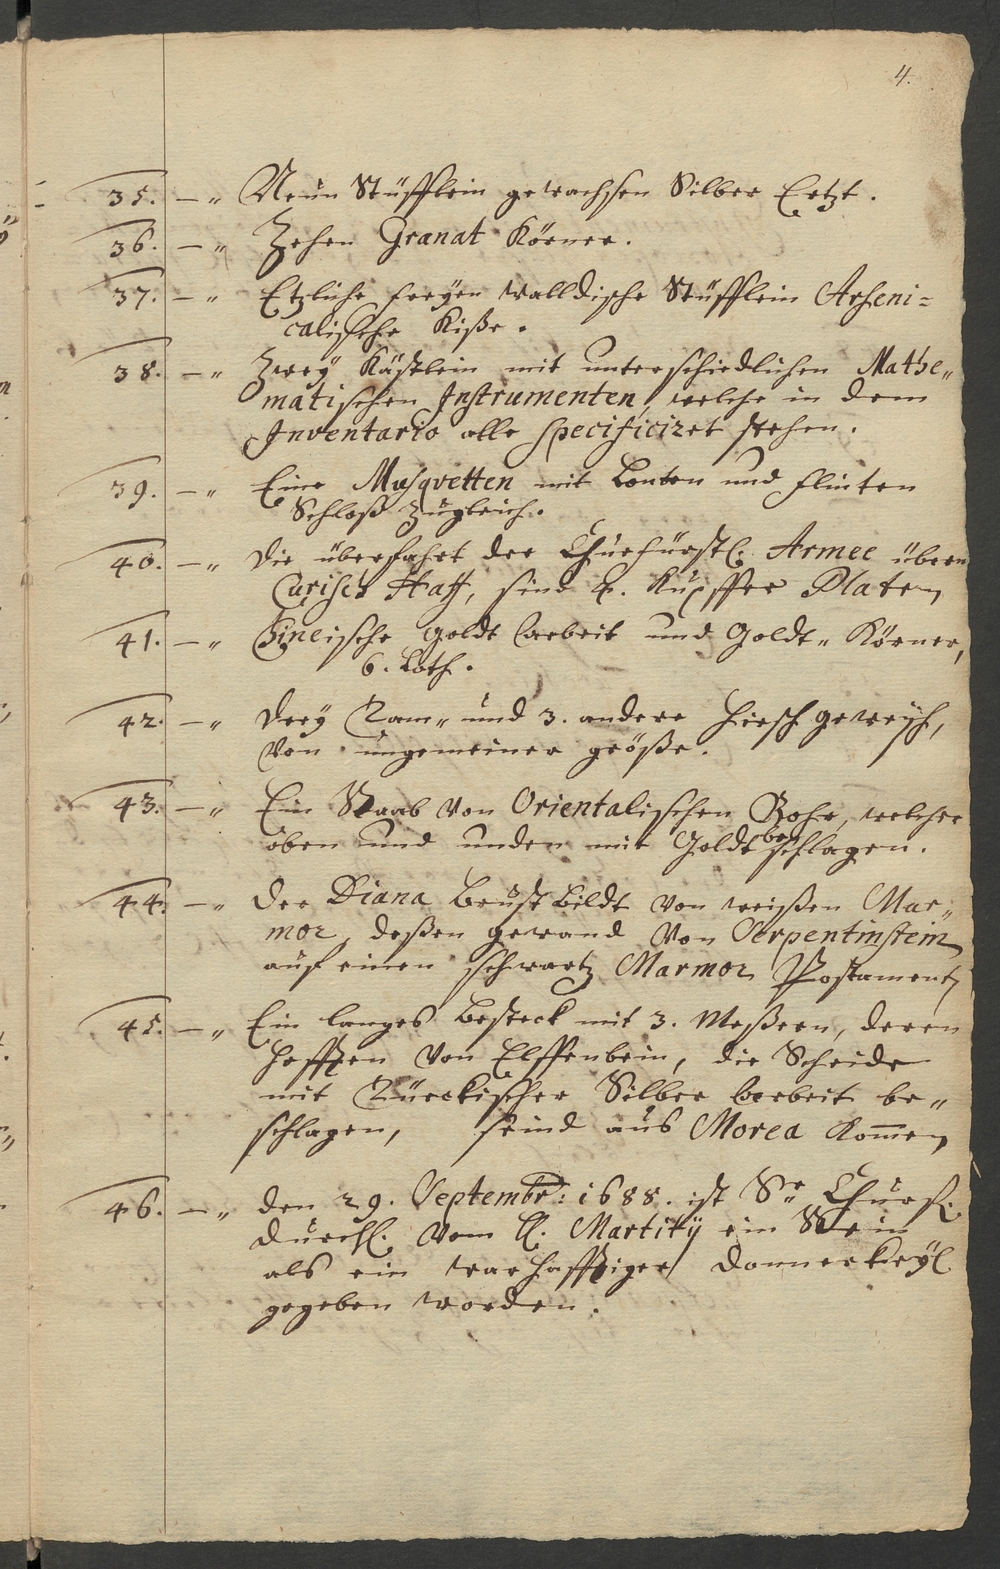 4.
35. — „ Neün Stüfflein gewachsen Silber Ertzt.
36. — „ Zehen Granat Körner.
37. — „ Etzliche freyen walldische Stüfflein Arseni=
calische Kiße.
38. — „ Zwey Kästlein mit unterschiedlichen Mathe„
matischen Instrumenten, welche in dem
Inventario alle specificiret stehen.
39. — „ Eine Musqvetten mit Lonten und flinten
Schloß zugleich.
40. — „ Die überfahrt der Churfürstl. Armee übern
Curisch Haff, sind 4. Kupffer Platen
41. — „ Chineische Goldt arbeit und Goldt„ Körner,
6. Loth.
42. — „ Drey Dam„ und 3. andere Hirsch geweyh,
von ungemeiner größe.
43. — „ Ein Staab von Orientalischen Rohr, welcher
oben und unden mit Goldt beschlagen.
44. — „ Der Diana Brust Bildt von weißen Mar„
mor, deßen gewand von Serpentinstein
auf einen schwartz Marmor Postament
45. — „ Ein langes Besteck mit 3. Meßern, deren
Hefften von Elffenbein, die Scheide
mit Türckischer Silber arbeit be„
schlagen, seind aus Morea Kommen
46. — „ Den 29. Septembr: 1688. ist Sr Churf.
Durchl. vom H. Martitzÿ ein Stein
als ein warhafftiger Donnerkeyl
gegeben worden.